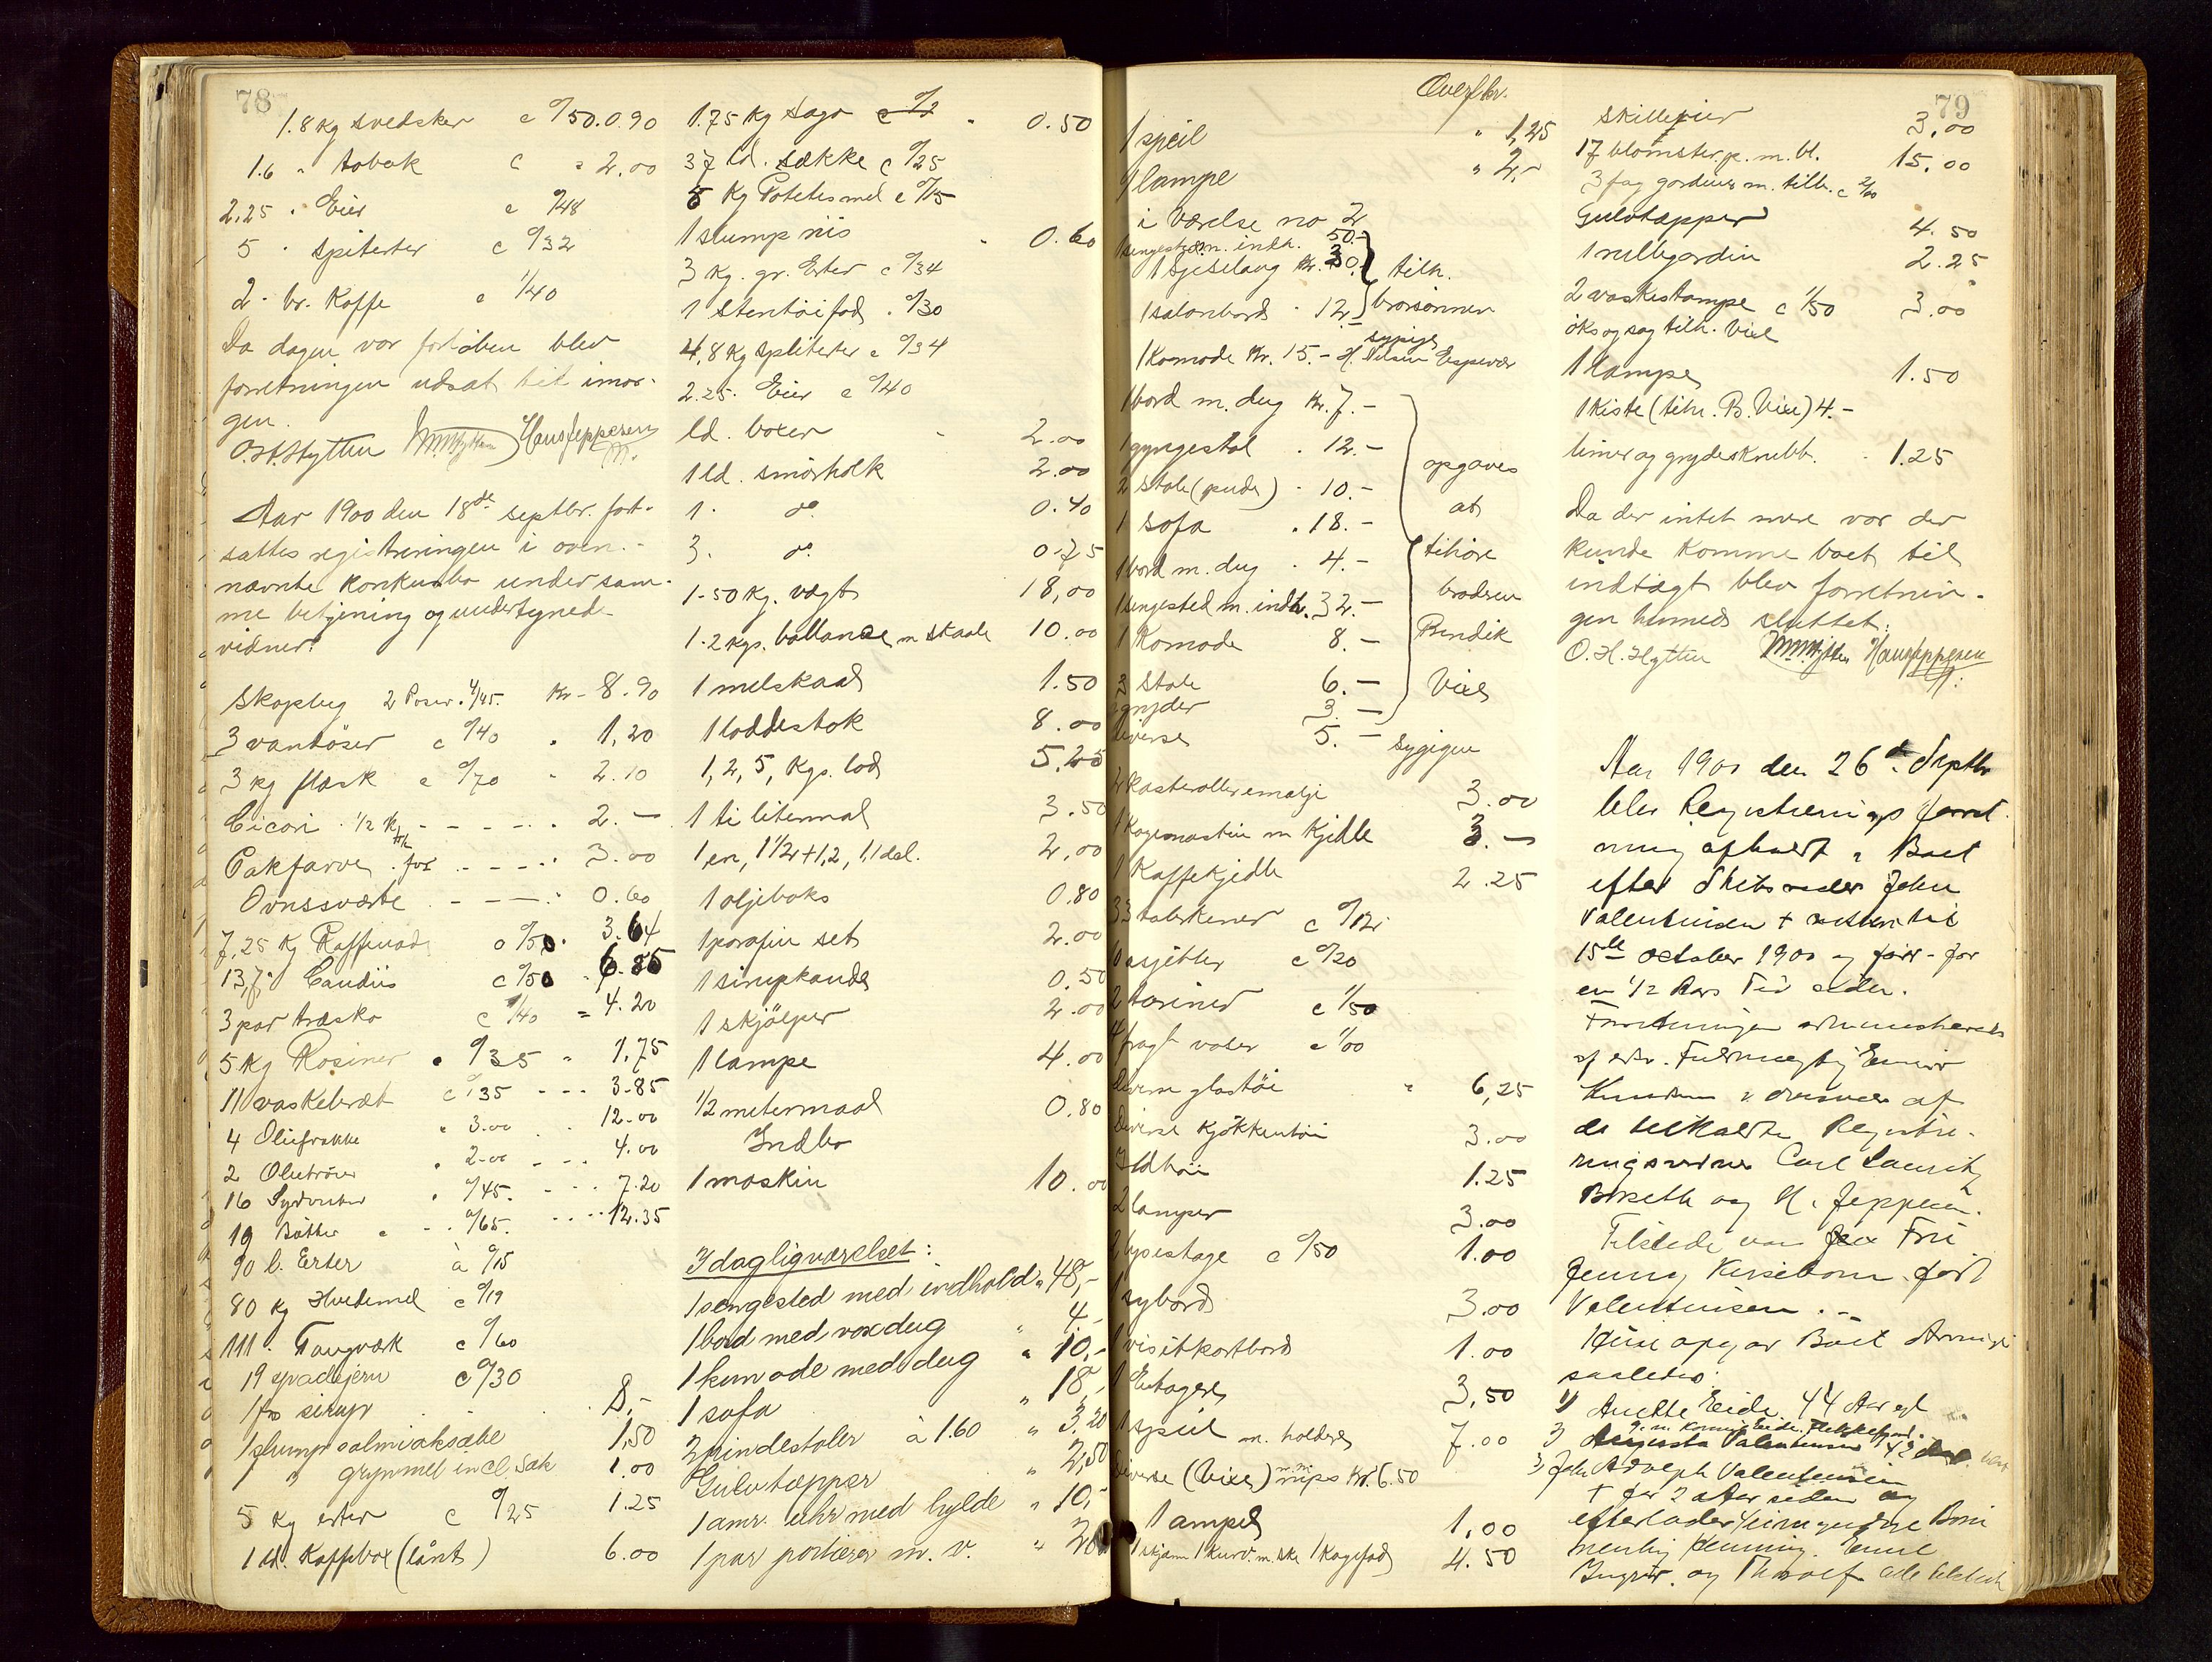 78
1.8 kg svedsker c 0/50. 0.90
1.6 " tobak c " 2.00
2.25 " Eier c 0/48
5 " spliterter c 0/32
2 " br. Kaffe c 1/40
Da dagen var forløben blev
forretningen udsat til imor-
gen.
O.H. Hytten Hans Jeppesen
Aar 1900 den 18de septbr. fort-
sattes registreringen i oven-
nævnte konkursbo under sam-
me betjening og undertegnede
vidner:
2 Poser 4/45. Kr. 8.90
3 vantöser c 0/40 " 1,20
3 kg flæsk c 0/70 " 2.10
Cicori 1/2 Kg - - - - 2.—
Pakfarve for - - - - 3.00
Ovnssværte - - - 0.60
7,25 Kg Raffinade c 0/50 " 3.64
13,7 " Candiis c 0/50 " 6.85
3 par træsko c 1/40 = 4.20
5 Kg Rosiner " 0/35 " 1,75
11 vaskebræt c 0/35 - - - 3.85
4 Oliefrakke " 3.00 12.00
2 Oliebröier " 2.00 - - - 4.00
16 Sydvester " 0/45. - - - 7.20
19 Bötter c 0/65. - - - 12.35
90 l. Erter à 0/15
80 Kg Hvedemel c 0/19
111 " c 0/60
19 spadejern c 0/30
1 fs sirup 8,-
1 slump salmiaksæbe 1,50
" grynmel incl. sæk 1.00
5 kg erter c 0/25 1.25
1 ld. Kaffebox (lånt) 6.00
1.75 Kg Sago " 0.50
37 ld. sække c 0/25
5 Kg Potetesmel c 0/15
1 slump riis " 0.60
3 Kg. gr. Erter c 0/34
1 Stentöifad " 0/30
4,8 Kg spliterter c 0/34
2.25 " Eier c 0/40
ld. boxer " 2.00
1 ld. smörholk 2.00
1 " do 0.40
3 " do 0.75
1-50 Kg. vægt 18,00
1-2 kgs. ballance m skaale 10.00
1 melskaal 1.50
1 loddestok 8.00
1, 2, 5, Kgs. lod 5,25
1 ti litermaal 3.50
1 en, 1 1/2 + 1,2, 1,1 del. 2,00
1 oljeboks 0.80
1 parafin set 2.00
1 sirupkande 0.50
1 skjölper 2.00
1 lampe 4.00
1/2 metermaal 0.80
Indbo
1 maskin 10.00
I dagligværelset:
1 sengested med indhold " 48,-
1 bord med voxdug " 4,-
1 komode med dug " 10,-
1 sofa " 18,-
2 pindestoler à 1.60 " 3.20
Gulvtæpper " 2,50
1 amr. uhr med hylde " 10,-
1 par portierer m. v. "
79
Overfkr.
1 speil " 1,25
1 lampe " 2,-
i Værelse no 2
1 sengested m. indh. 50.-
tilh.
1 salonbord " 12 brorsönnen
sypige
1 Komode Kr. 15.- H. Nilsen Espevær
1 bord m. dug Kr. 7.-
1 gyngestol " 12.-
2 Stole (pude) " 10.-
1 Sofa " 18.-
1 bord m. dug " 4.-
1 sengested m. indh. 32.-
1 Komode 8.-
3 Stole 6.-
gryder 3.-
diverse 5.- sygigen
opgaves
at
tilhöre
broderen
Bendik
Vier
2 kasteroller emalje 3.00
1 Kogemaskin m Kjedle 3.—
1 Kaffekjedle 2.25
33 talerkener c 0/12
10 asjetter c 0/20
2 tariner c 1/50
4 fragt vaser c 1/00
Divers glastöi " 6,25
Diverse kjökkentöi 3.00
Ildtöi 1.25
2 lamper 3.00
2 lysestage c 0/50 1.00
1 sybord 3.00
1 visitkortbord 1.00
1 Etagere 3,50
1 speil m. holdere 7.00
Diverse (Vier) nips Kr. 6.50
1 ampel 1,00
1 skjærm 1 kurv m. ske 1 Kagefad 4.50
Skillepier 3,00
17 blomsterp. m. bl. 15.00
3 fag gardiner m. tilb. c 2/00
Gulvtæpper 4.50
1 rullegardin 2.25
2 vaskestampe c 1/50 3.00
öks og sag tilh. Vier
1 lampe 1.50
1 Kiste (tilh. B. Vier) 4.-
limer og grydeskrubb. 1.25
Da der intet mere var der
kunde komme boet til
indtægt blev forretnin-
gen hermed sluttet.
O. H. Hytten Hans Jeppesen
Aar 1900 den 26de Septbr
blev Registreringsforret-
ning afholdt i Boet
efter Skibsreder John
Valentinsen +
15de October 1900 og
en 1/2 Aars Tid siden.
Forretningen administreredes
af Fuldmægtig Einar
Knudsen i overvær af
de tilkaldte Registre-
ringsvidner Carl Lauritz
og H. Jeppesen.
Tilstede var Fru
Jenny födt
Valentinsen.-
Hun opgav Boets Arvinger
saaledes:
1) Anette Eide 44 Aar
g. m. Eide, Flekkefjord.
2) Augusta Valentinsen 42
3) John Adolph Valentinsen
+ for 2 Aar siden og
efterlader umyndige Börn
nemlig Henning, Emil
Ingvar og Thoralf alle tilstede